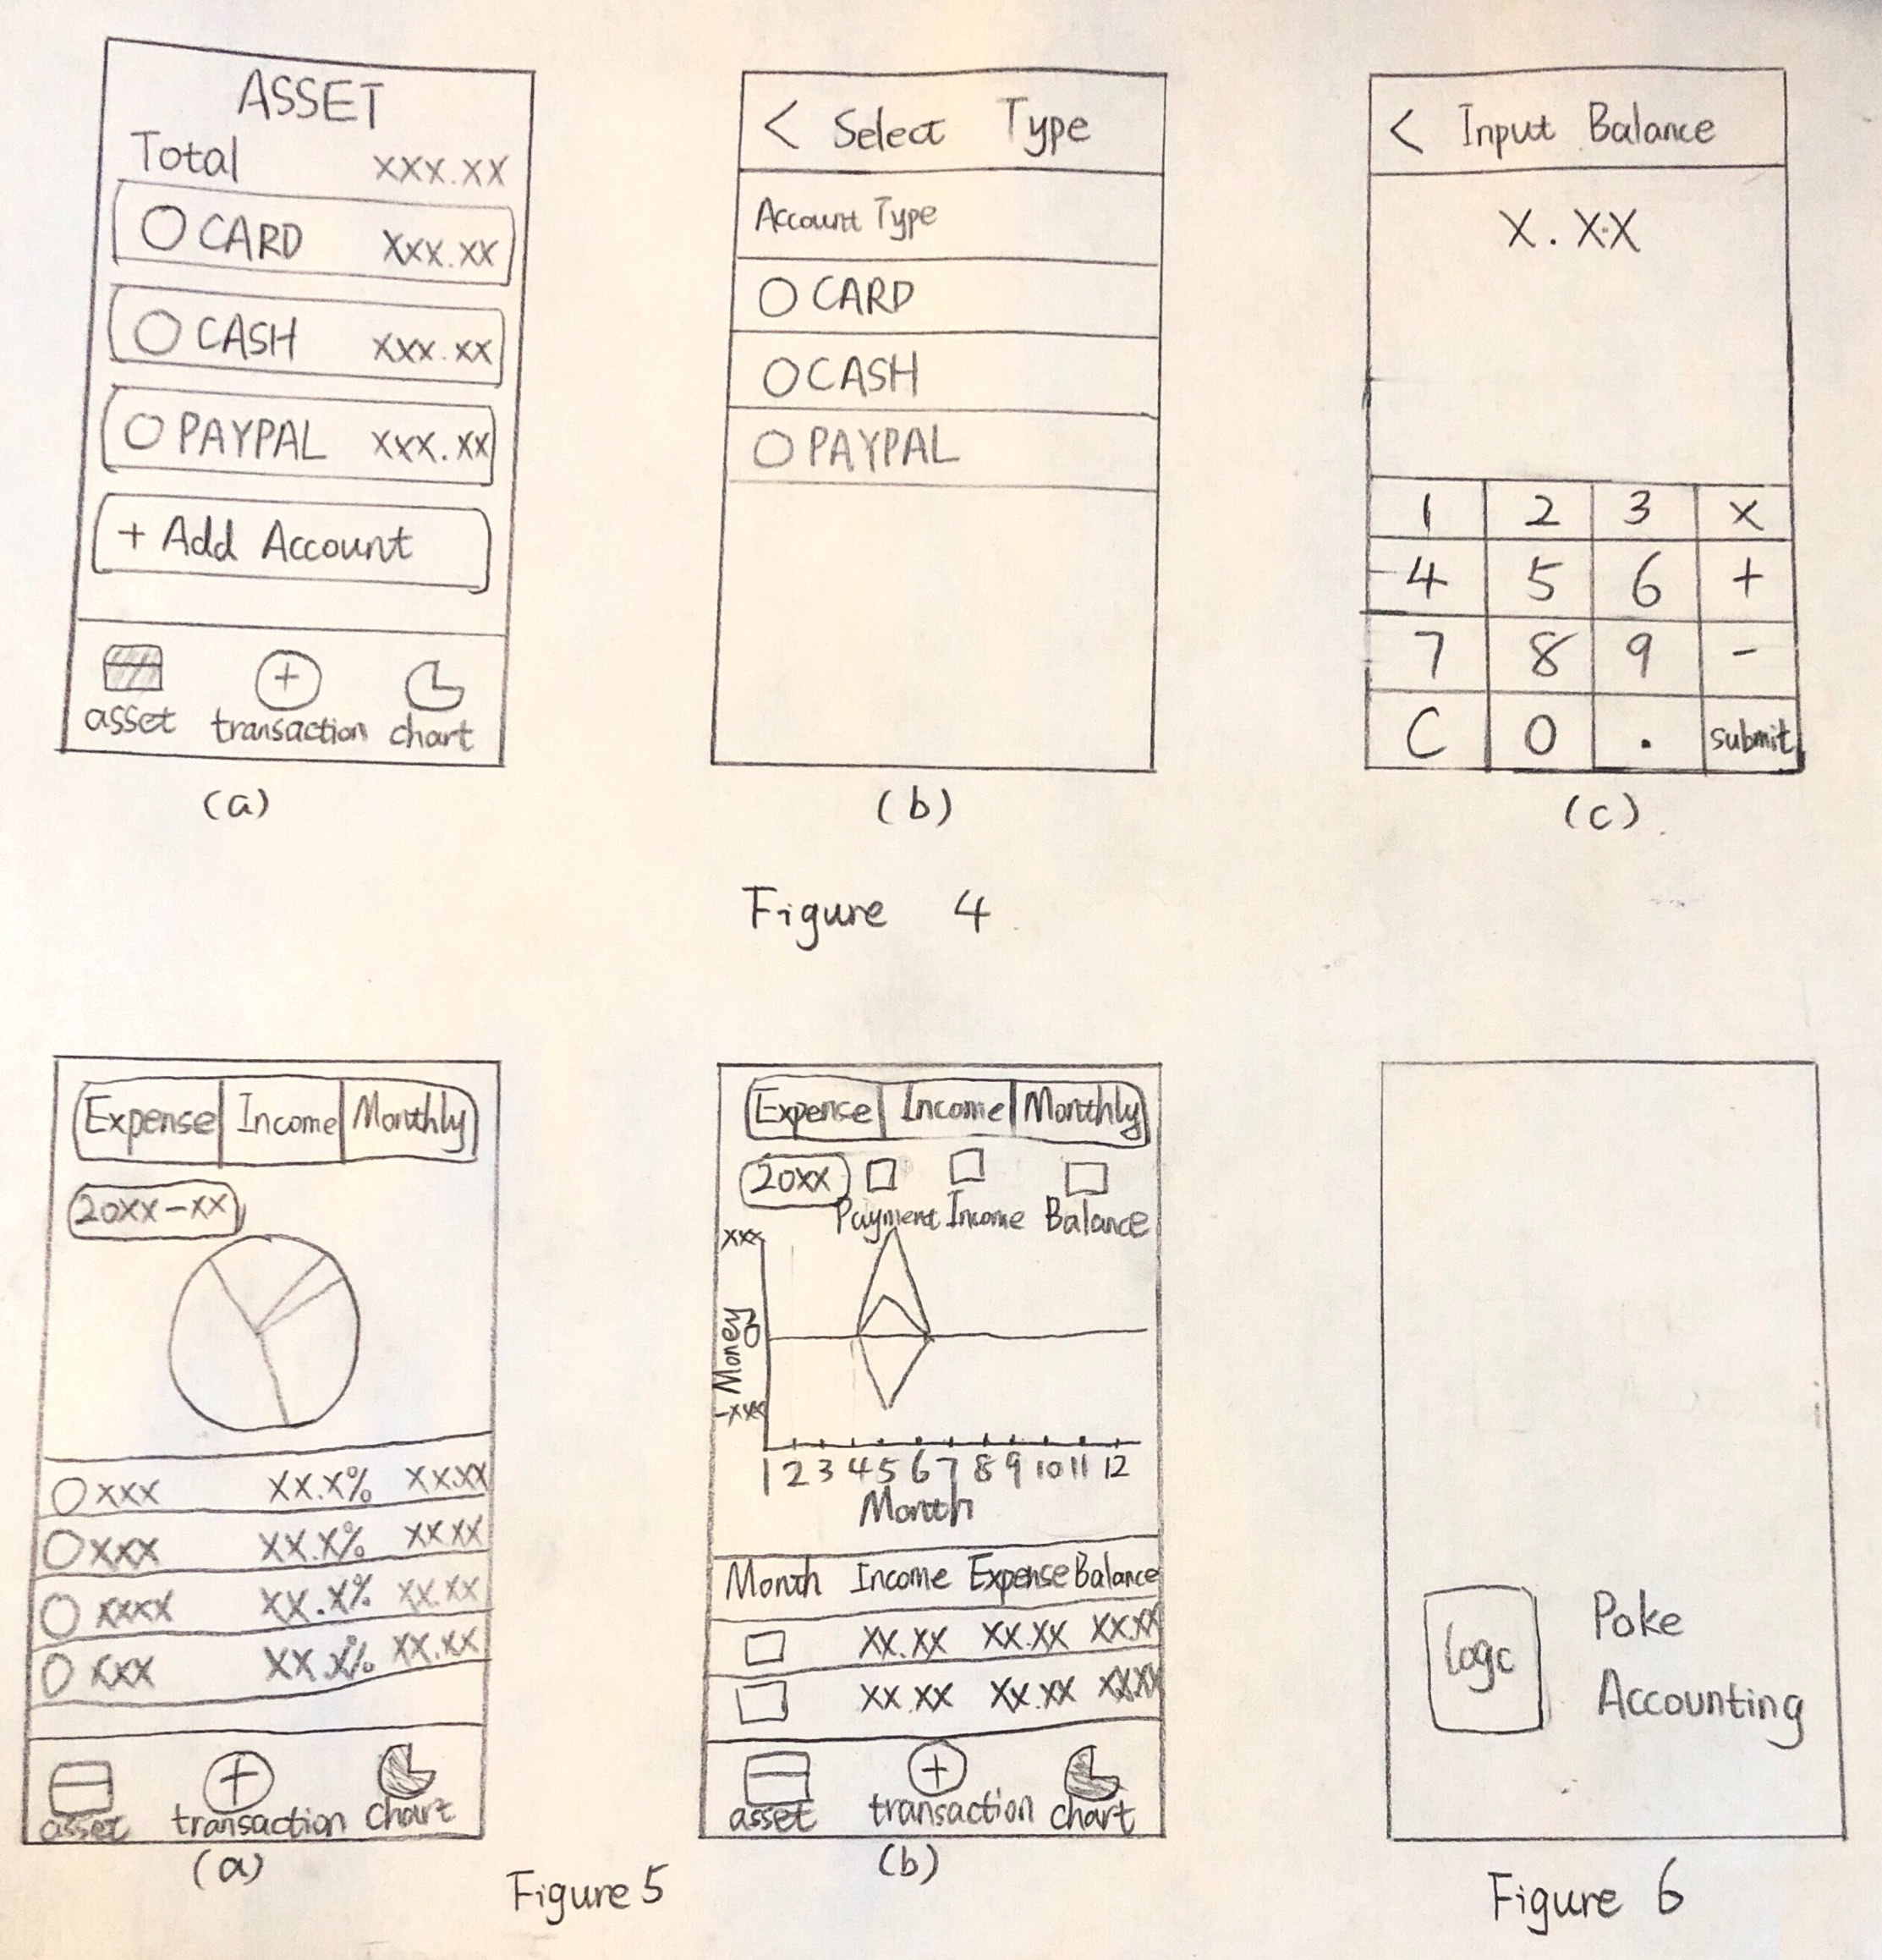 ASSET
Total xxx.xx
CARD xxx.xx
CASH xxx.xx
PAYPAL xxx.xx
+ Add Account
asset transaction chart
(a)
< Select Type
Account Type
CARD
CASH
PAYPAL
(b)
< Input Balance
X.XX
1 2 3 ×
4 5 6 +
7 8 9 -
C 0 . submit
(c)
Figure 4
Expense Income Monthly
20xx-xx
xxx xx.x% xx.xx
xxx xx.x% xx.xx
xxxx xx.x% xx.xx
xxx xx.x% xx.xx
asset transaction chart
(a)
Expense Income Monthly
20xx
Payment Income Balance
xxx
Money
0
-xxx
1 2 3 4 5 6 7 8 9 10 11 12
Month
Month Income Expense Balance
xx.xx xx.xx xx.xx
xx.xx xx.xx xx.xx
asset transaction chart
(b)
Figure 5
logo
Poke
Accounting
Figure 6